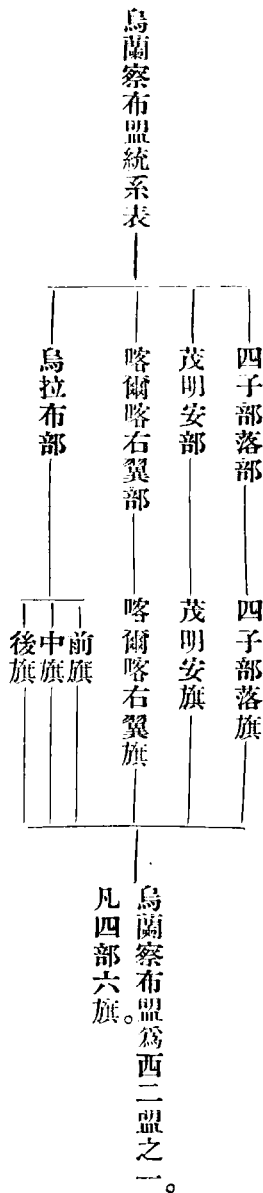 烏蘭察布盟統系表
四子部落部
茂明安部
喀爾喀右翼部
烏拉布部
四子部落旗
茂明安旗
喀爾喀右翼旗
前旗
中旗
後旗
烏蘭察布盟爲西二盟之一。
凡四部六旗。